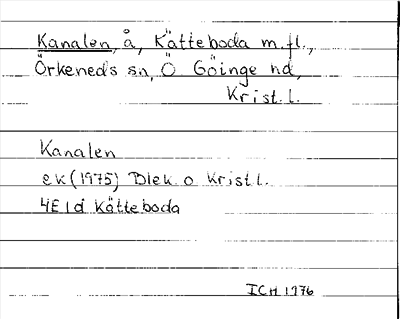 Kanalen, å, Kätteboda m.fl.,
Örkeneds sn, Ö Göinge hd,
Krist. l.
Kanalen
ek (1975) Blek. o Krist l.
4E 1d Kätteboda
ICH 1976